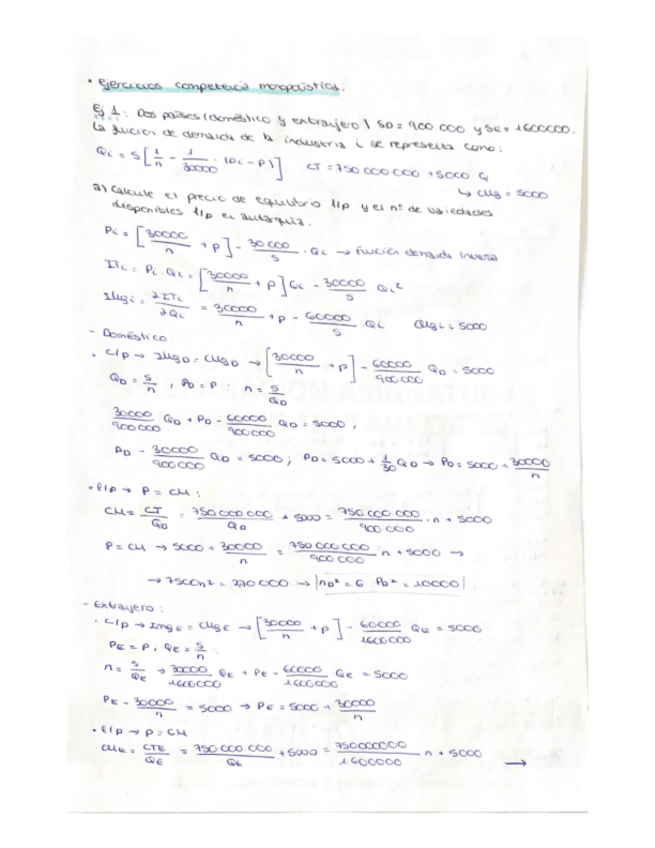 · Ejercicios competencia monopolística.
Ej 1: Dos países (doméstico y extranjero) SD = 900 000 y SE = 1600000.
La función de demanda de la industria i se representa como:
Qi = S [1/n - 1/30000 · (Pi - P)]   CT = 750 000 000 + 5000 · Q
↳ CMg = 5000
a) Calcule el precio de equilibrio l/p y el nº de variedades
disponibles l/p en autarquía.
Pi = [30000/n + P] - 30 000/S · Qi → Función demanda inversa
ITi = Pi · Qi = [30000/n + P] Qi - 30000/S Qi²
IMgi = ∂ITi/∂Qi = 30000/n + P - 60000/S · Qi   CMgi = 5000
- Doméstico:
· C/p → IMgD = CMgD → [30000/n + P] - 60000/900 000 QD = 5000
QD = S/n , PD = P : n = S/QD
30000/900 000 QD + PD - 60000/900 000 QD = 5000 ;
PD - 30000/900 000 QD = 5000 ; PD = 5000 + 1/30 QD → PD = 5000 + 30000/n
· l/p → P = CM :
CM = CT/QD = 750 000 000/QD + 5000 = 750 000 000/900 000 · n + 5000
P = CM → 5000 + 30000/n = 750 000 000/900 000 n + 5000 →
→ 7500n² = 270 000 → |nD* = 6 PD* = 10000|
- Extrajero :
· C/p → ImgE = CMgE → [30000/n + P] - 60000/1600000 QE = 5000
PE = P , QE = S/n :
n = S/QE → 30000/1600000 QE + PE - 60000/1600000 QE = 5000
PE - 30000/n = 5000 → PE = 5000 + 30000/n
· l/p → P = CM
CME = CTE/QE = 750 000 000/QE + 5000 = 750000000/1600000 n + 5000 →